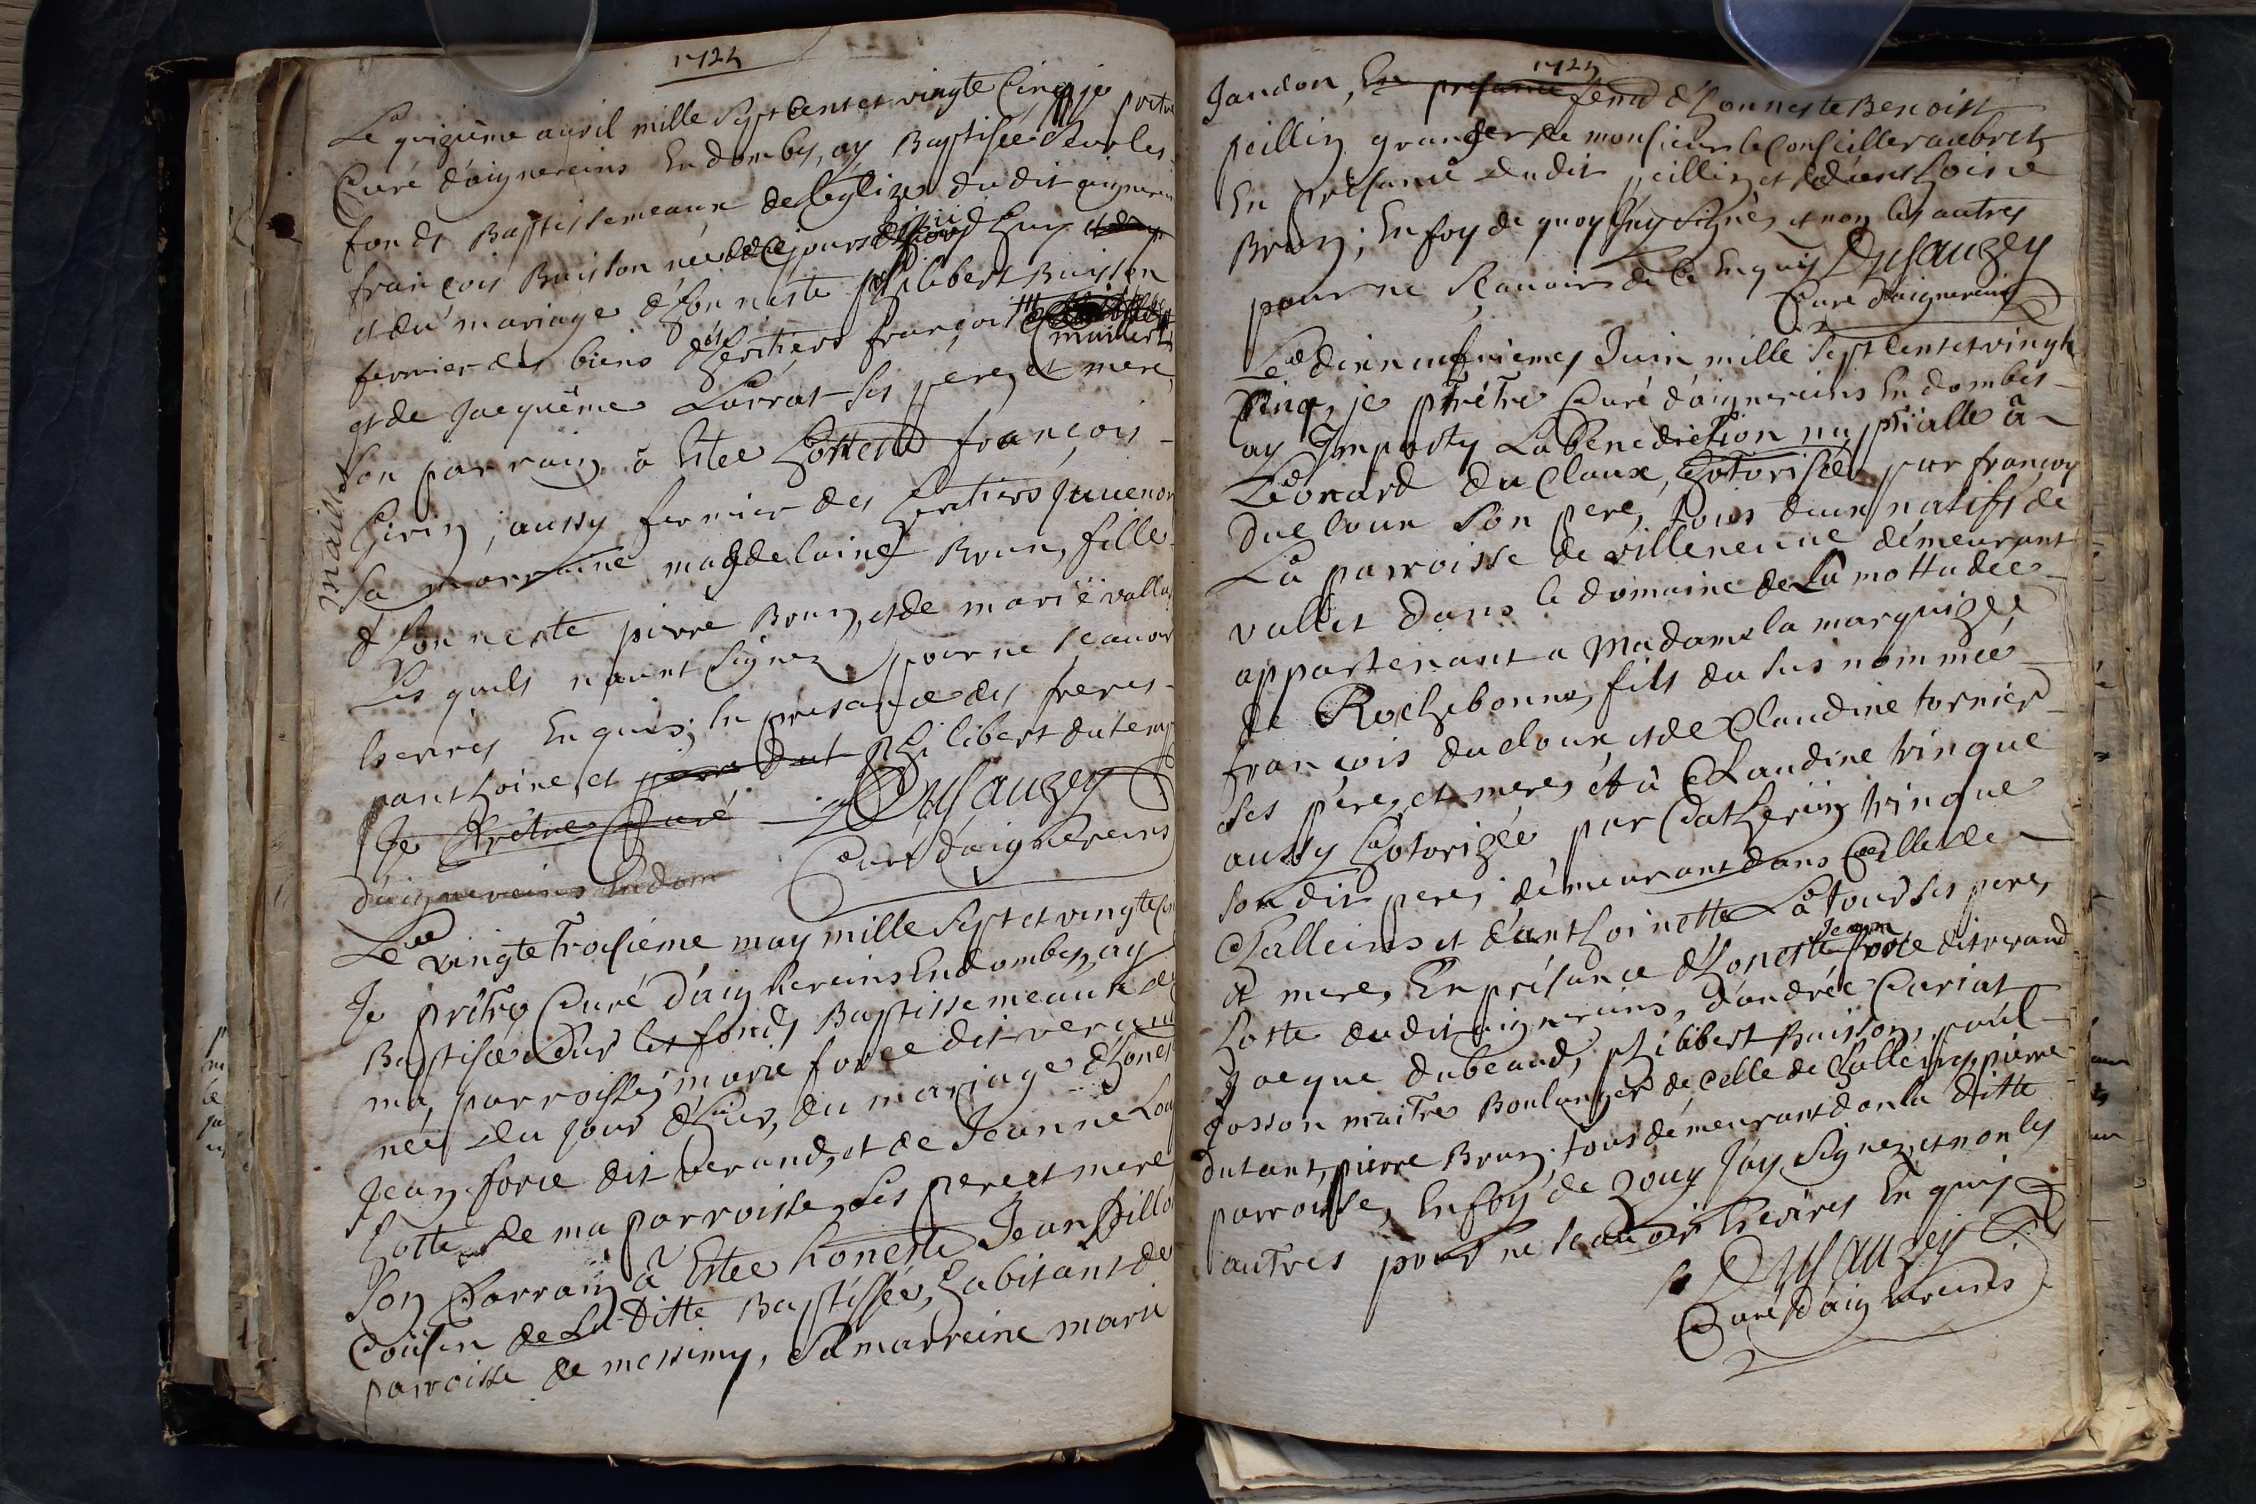 1725
Le quizième auril mille sept cent et vingte Cinq je prétre
Curé d'aignereins En dombes, ay Baptisée sur les
fonds Baptissemeaux de l'églize du dit aignerein
françois Buisson née de ce jours d'huy
et du mariage d'honneste philibert Buisson
fermier des biens des hértiers françois maillert
et de Jacquême Larrat ses pere, et mere,
Son parrain à Estee honnest françois
Girin, aussy fermier des hertiers Juuenon
Sa marraine magdelaine Brun, fille
d'honneste pierre Brun, et de marië vallas
Les quels n'aunt Signez pour ne scauoir
Enquis; En presance des freres
anthoine, et philibert dutemp
Je Prétre Curé Dusauzey
d'aignereins En dom Curé d'aignereins
maillet
Le vingte Troisiéme may mille Sept et vingte Cin
Je prétre Curé D'aignereins En dombes, ay
Baptisée Sur les fonds Baptissemeaux de
ma, parroisse, marie forêe dit verand
née du jour d'hier, du mariage d'hones
Jean forie dit verand, et de Jeanne Lou
hotte de ma parroisse, ses pere et mere
Son Parrain à Estee honeste Jean Pillo
Coûsin de La Ditte Baptissée, habitant de
parroisse de messimy, Sa marreine marie
1725
Jandon, En presance fem̃e d'honneste Benoist
peillin granger de monsieur le Conseiller aubret
En présance du dit peillin, et d'anthoine
Brun; En foy de quoy J'ay Signé, et non les autres
pour ne Scauoir de Ce Enquis Dusauzey
Curé d'aignereins
Le dixneufuiemes Juin mille Sept Cent et vingt
Cinq, je prétre Curé d'aignereins En dombes
ay Imparty La Benediction nuptialle à
Léonard du Claux, hotorisée par françois
Ducloux Son pere, tous deux natifs de
La parroisse de villeneuue démeurant
vallet dans le domaine de La motta dee
appartenant a Madame la marquize,
de Rochebonne, fils du sus nommée
françois du cloux et de Claudine tornier
Ses pere, et mere, et à Claudine tringue
aussy hotorizée par Catherin tringue
Son dit pere, démeurant dans Celle de
Challeins et d'anthoinette La tour Ses pere,
et mere, En présance d'honeste Jean forée dit verand
hotte du dit aignereins, d'andrée Curiat
Jacque dubeaud, philibert Buisson, paul
Josson maitre Boulanger de Celle de Challeins, pierre
dutant, pierre Brun, tous démeurant dans la ditte
parroisse, En foy de quoy J'ay Signez, et non les
autres pour ne scauoir heceires Enquis
Dusauzey
Curé D'aignereins